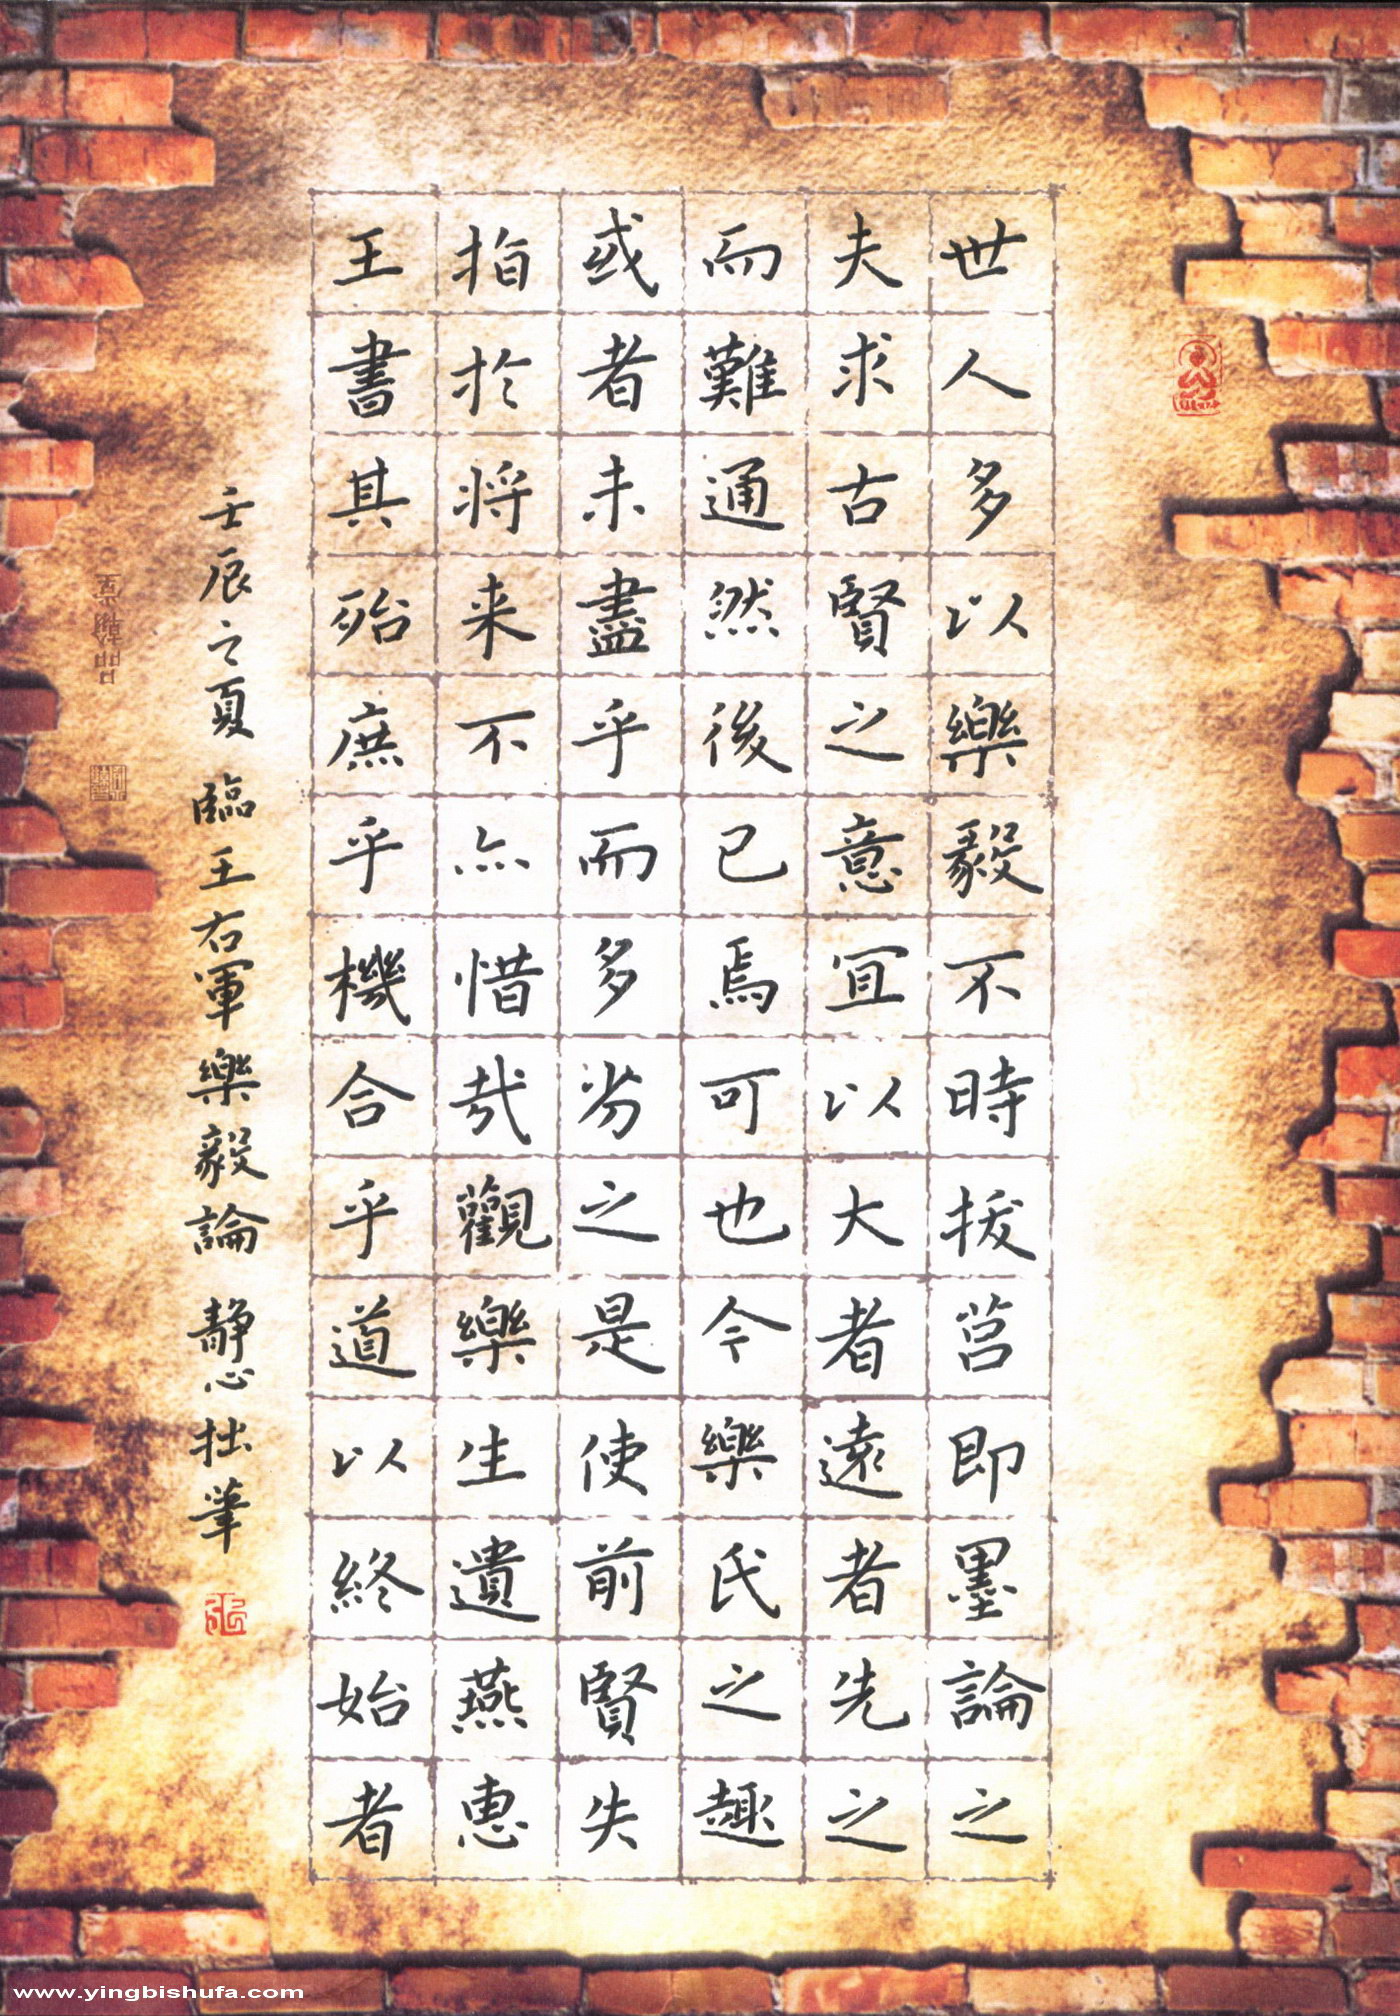 世人多以樂毅不時拔莒即墨論之
夫求古賢之意宜以大者遠者先之
而難通然後已焉可也今樂氏之趣
或者未盡乎而多劣之是使前賢失
指於将来不亦惜哉觀樂生遺燕惠
王書其殆庶乎機合乎道以終始者
壬辰之夏 臨王右軍 樂毅論 靜心拙筆
www.yingbishufa.com